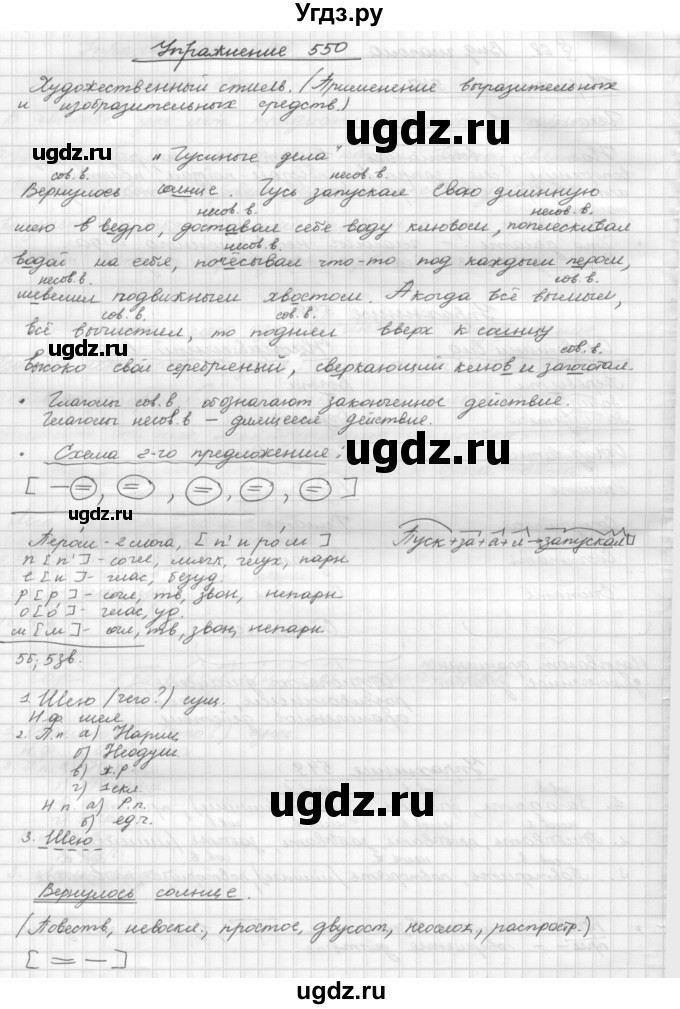 Угдз.ру
Упражнение 550
Художественный стиль. (Применение выразительных
и изобразительных средств)
"Гусиные дела"
сов.в. несов.в.
Вернулось солнце. Гусь запускал свою длинную
несов.в. несов.в.
шею в ведро, доставал себе воду клювом, поплескивал
несов.в.
водой на себя, почёсывал что-то под каждым пером,
несов.в. сов.в.
шевелил подвижным хвостом. А когда всё вымыл,
сов.в. сов.в.
всё вычистил, то поднял вверх к солнцу
сов.в.
высоко свой серебряный, сверкающий клюв и загоготал.
• Глаголы сов.в обозначают законченное действие.
Глаголы несов.в – длящееся действие.
• Схема 2-го предложения:
[ — =, =, =, =, = ]
Перо́м - 2 слога, [п' и ро́ м] Пуск+за+а+л→запускал
п [п'] - согл, мягк, глух, парн
е [и] - глас, безуд.
р [р] - согл, тв, звон, непарн
о [о́] - глас, уд.
м [м] - согл, тв, звон, непарн
5б, 5зв.
1. Шею (чего?) сущ.
Н.ф. шея
2. П.п. а) Нариц
б) Неодуш
в) ж.р
г) 1скл.
Н.п. а) Р.п.
б) ед.ч.
3. Шею
Вернулось солнце.
(Повеств, невоскл., простое, двусост, неослож, распростр.)
[ = — ]
ugdz.ru
ugdz.ru
ugdz.ru
ugdz.ru
ugdz.ru
ugdz.ru
ugdz.ru
ugdz.ru
ugdz.ru
ugdz.ru
ugdz.ru
ugdz.ru
ugdz.ru